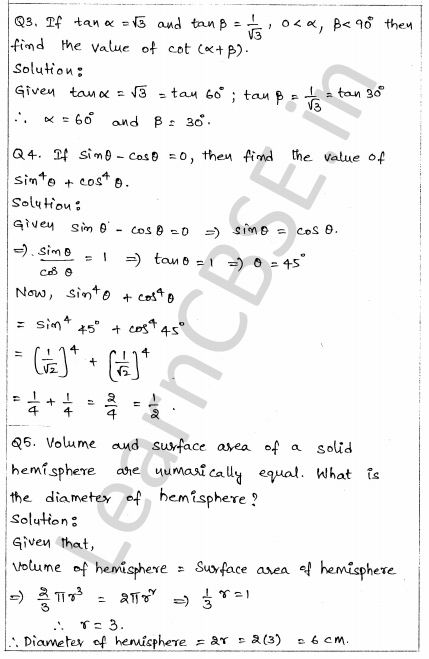 Q3. If tanα = √3 and tanβ = 1/√3, 0 < α, β < 90° then
find the value of cot (α+β).
Solution:
Given tanα = √3 = tan 60° ; tan β = 1/√3 = tan 30°
∴ α = 60° and β = 30°.
Q4. If sinθ - cosθ = 0, then find the value of
sin⁴θ + cos⁴θ.
Solution:
Given sin θ - cosθ = 0 ⇒ sinθ = cosθ.
⇒ sinθ/cosθ = 1 ⇒ tanθ = 1 ⇒ θ = 45°
Now, sin⁴θ + cos⁴θ
= sin⁴ 45° + cos⁴ 45°
= (1/√2)⁴ + (1/√2)⁴
= 1/4 + 1/4 = 2/4 = 1/2.
Q5. Volume and surface area of a solid
hemisphere are numarically equal. What is
the diameter of hemisphere?
Solution:
Given that,
Volume of hemisphere = Surface area of hemisphere
⇒ 2/3 πr³ = 2πr² ⇒ 1/3 r = 1
∴ r = 3.
∴ Diameter of hemisphere = 2r = 2(3) = 6 cm.
LearnCBSE.in